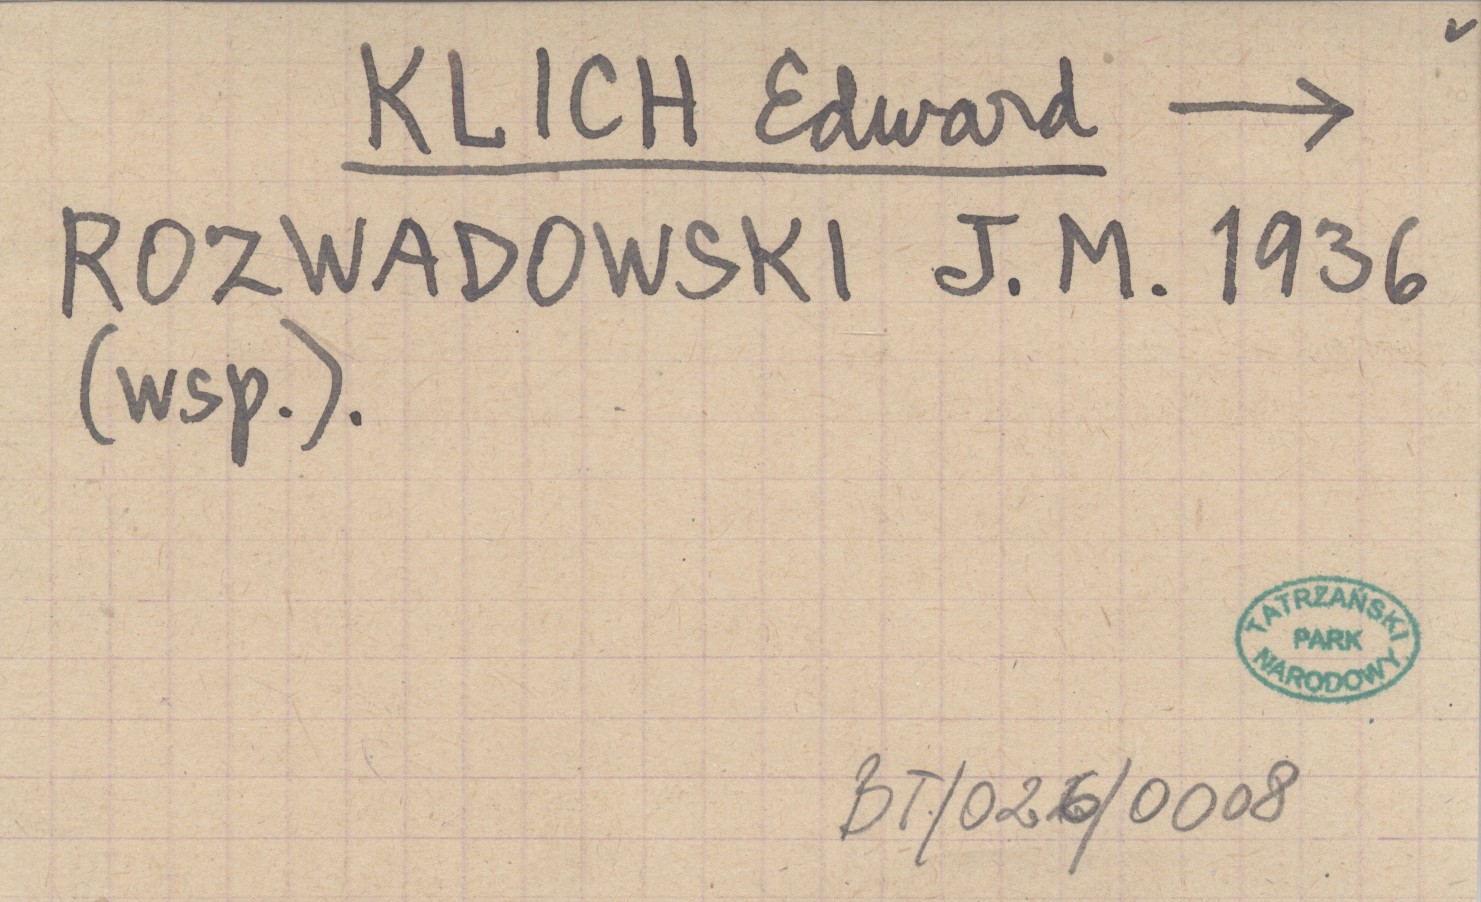 KLICH Edward →
ROZWADOWSKI J. M. 1936
(wsp.).
TATRZAŃSKI
PARK
NARODOWY
BT/026/0008